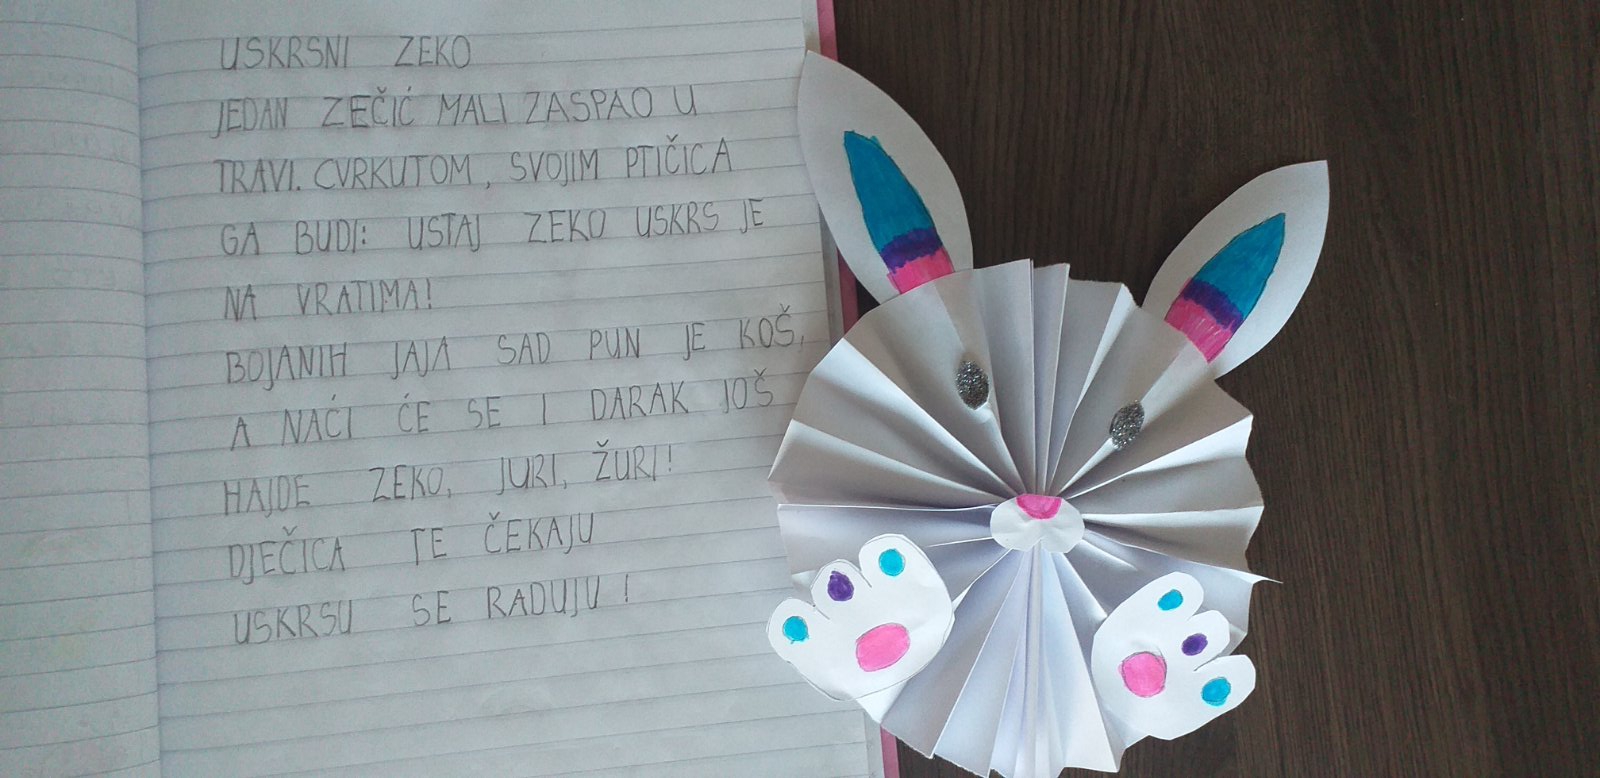 USKRSNI ZEKO
JEDAN ZEČIĆ MALI ZASPAO U
TRAVI. CVRKUTOM, SVOJIM PTIČICA
GA BUDI: USTAJ ZEKO USKRS JE
NA VRATIMA!
BOJANIH JAJA SAD PUN JE KOŠ,
A NAĆI ĆE SE I DARAK JOŠ
HAJDE ZEKO, JURI, ŽURI!
DJEČICA TE ČEKAJU
USKRSU SE RADUJU!